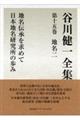 谷川健一全集
第十五巻 地名二
地名伝承を求めて
日本地名研究所の歩み